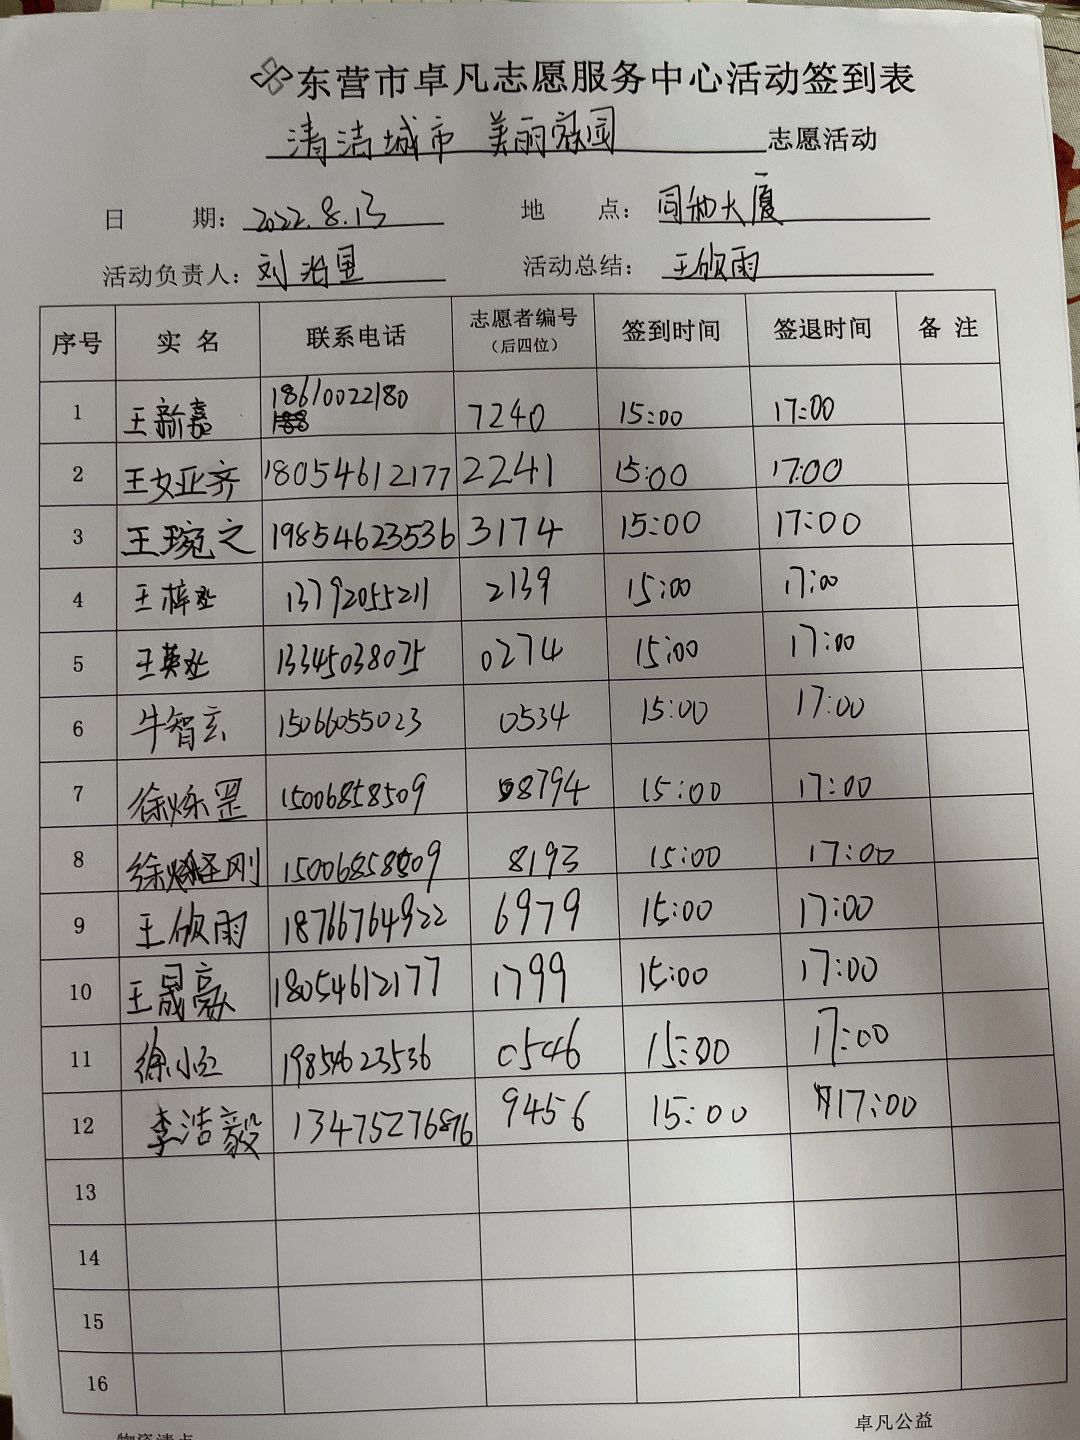 东营市卓凡志愿服务中心活动签到表
清洁城市 美丽家园 志愿活动
日 期: 2022.8.13 地 点: 同和大厦
活动负责人: 刘 活动总结: 王欣雨
序号 实 名 联系电话 志愿者编号 (后四位) 签到时间 签退时间 备 注
1 王新嘉 18610022180 7240 15:00 17:00
2 王 齐 18054612177 2241 15:00 17:00
3 王琬之 19854623536 3174 15:00 17:00
4 王梓 13792055211 2139 15:00 17:00
5 王英 13345038075 0274 15:00 17:00
6 牛智玄 15066055023 0534 15:00 17:00
7 徐烁罡 15006858509 8794 15:00 17:00
8 徐 刚 15006858509 8193 15:00 17:00
9 王欣雨 18766764922 6979 15:00 17:00
10 王晟豪 18054612177 1799 15:00 17:00
11 徐小红 19854623536 0546 15:00 17:00
12 李浩毅 13475276876 9456 15:00 17:00
13
14
15
16
物资清点 卓凡公益